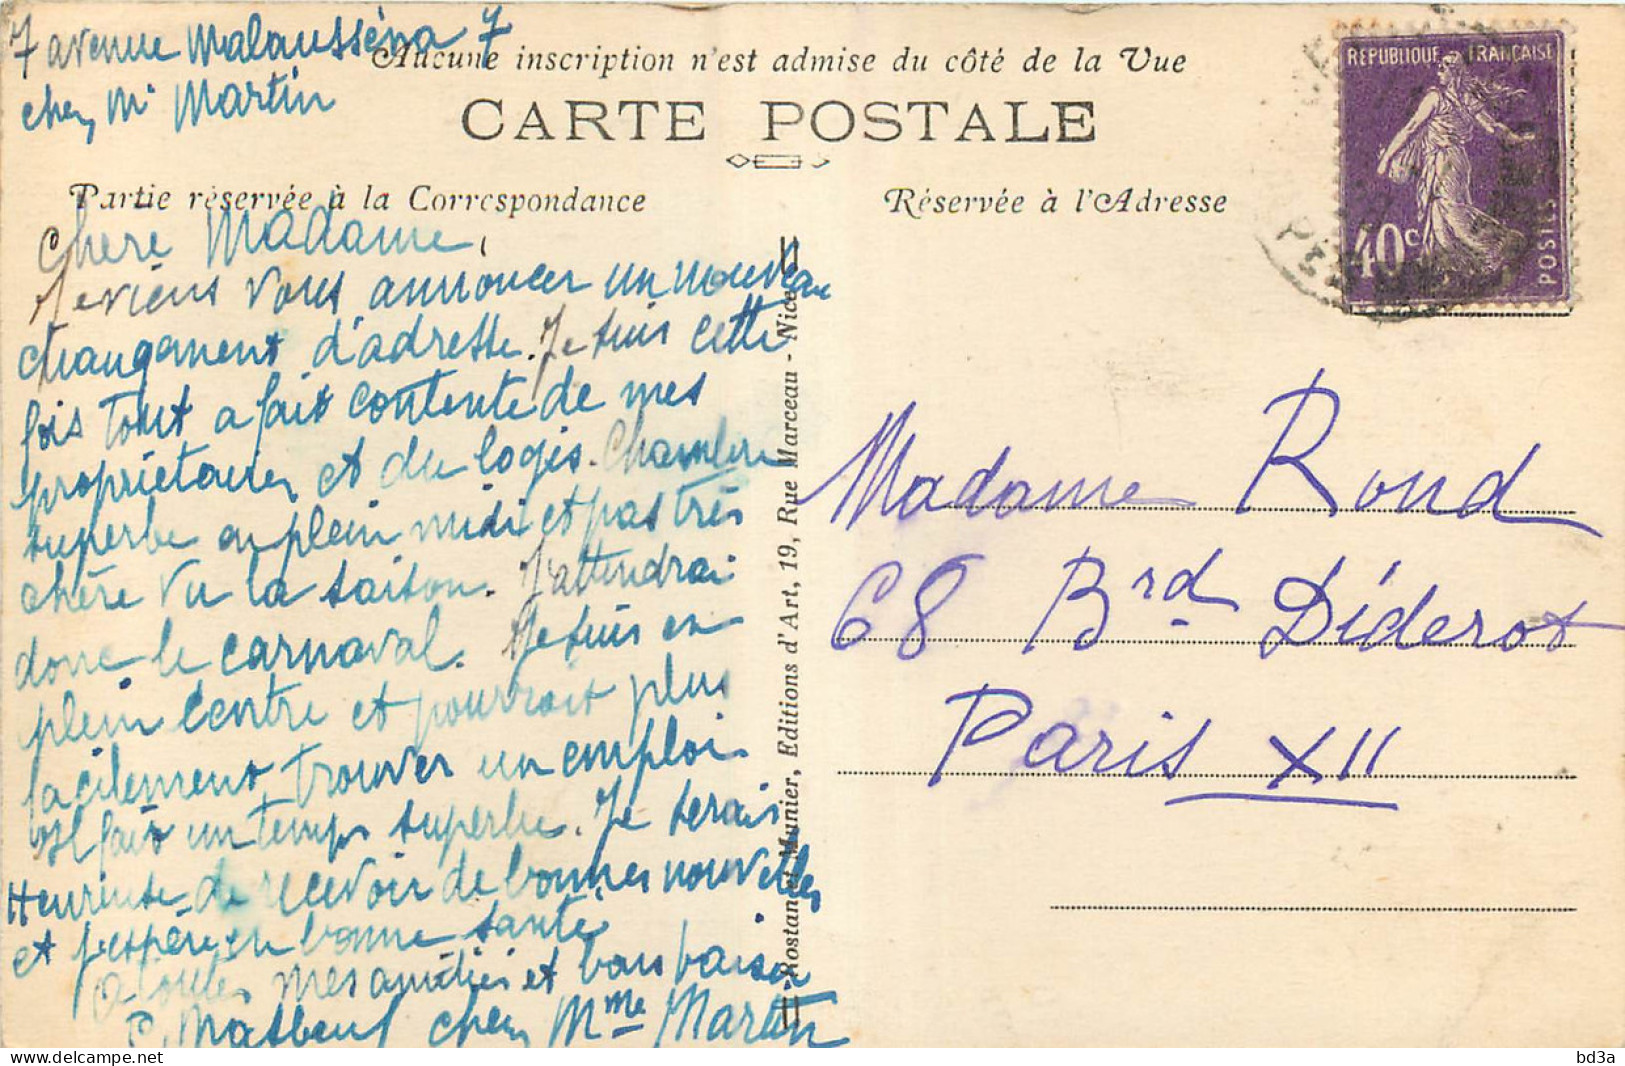 7 avenue Malausséna 7
chez Mr Martin
Aucune inscription n'est admise du côté de la Vue
CARTE POSTALE
Partie réservée à la Correspondance
Réservée à l'Adresse
REPUBLIQUE FRANÇAISE
40c
POSTES
Chère Madame,
Je viens vous annoncer un nouveau
changement d'adresse. Je suis cette
fois tout a fait contente de mes
proprietaires et du logis. Chambre
superbe en plein midi et pas très
chère vu la saison. J'attendrai
donc le carnaval. Je suis en
plein centre et pourrait plus
facilement trouver un emploi.
Il fait un temps superbe. Je serais
Heureuse de recevoir de bonnes nouvelles
et j'espère en bonne santé.
a toutes mes amitiés et bons baisers
C. Masbeuf chez Mme Martin
Rostan et Munier, Editions d'Art, 19, Rue Marceau - Nice
Madame Rond
68 Brd Diderot
Paris XII
delcampe.net
bd3a